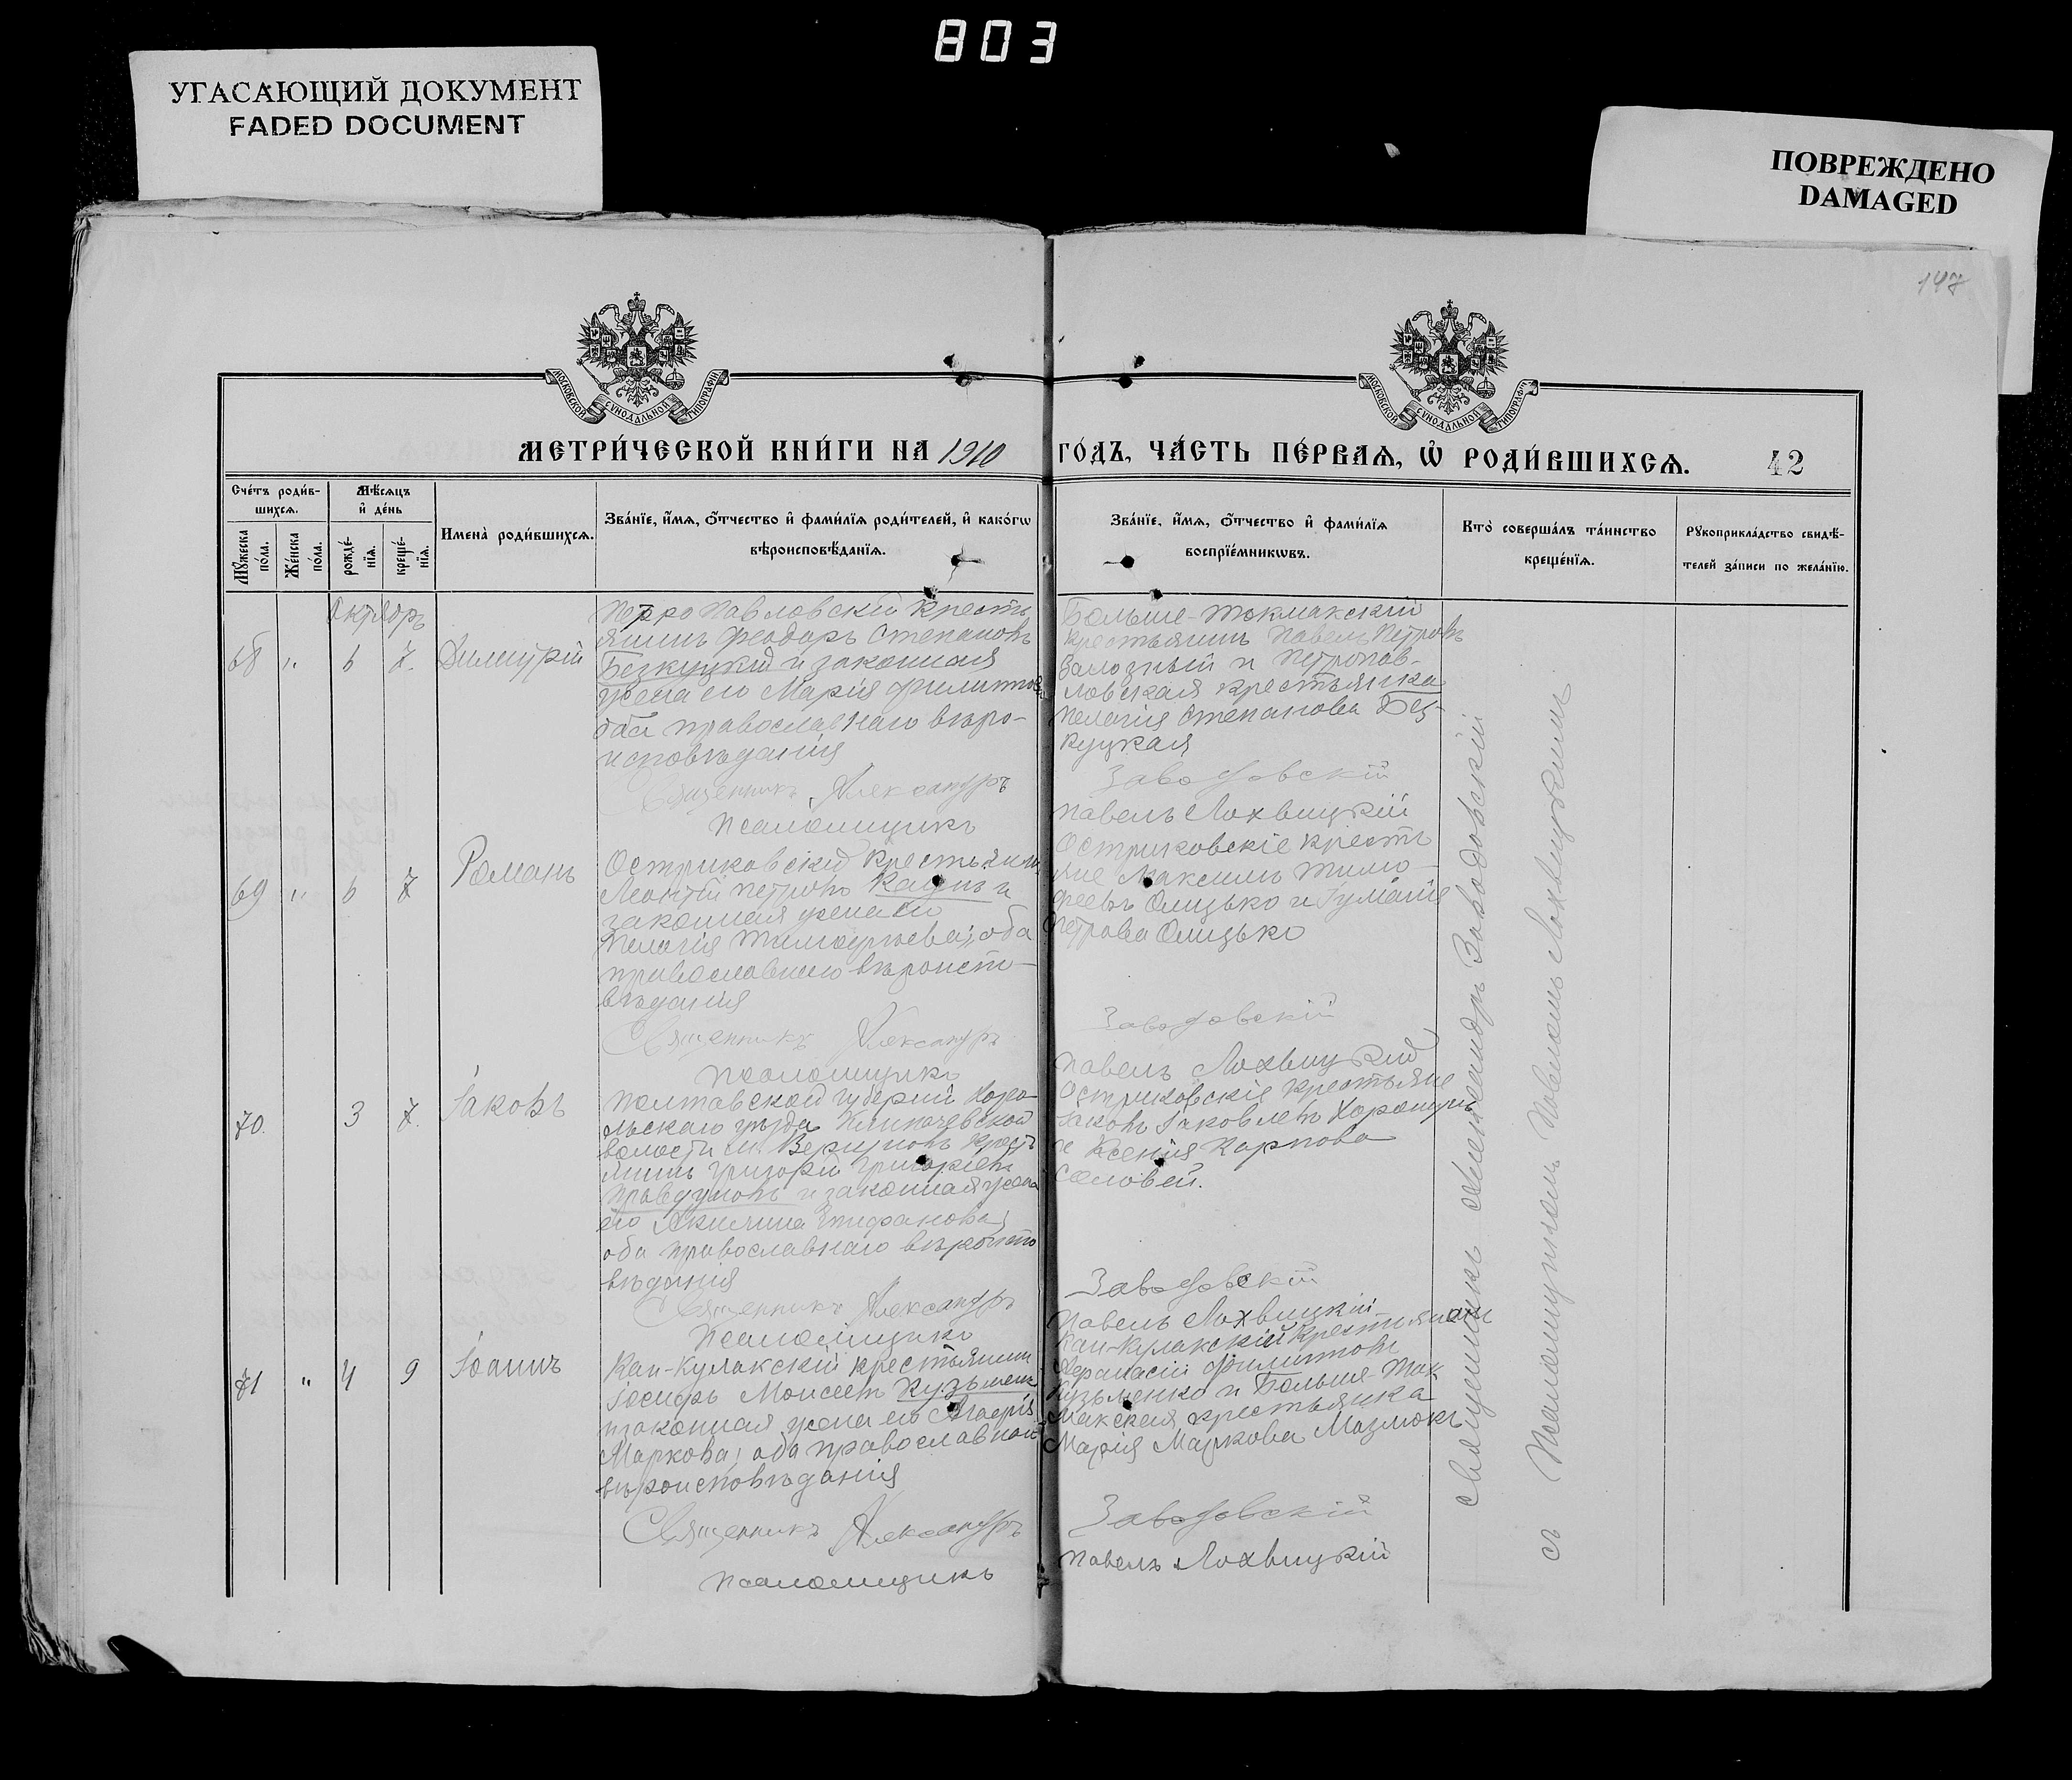 803
УГАСАЮЩИЙ ДОКУМЕНТ
FADED DOCUMENT
ПОВРЕЖДЕНО
DAMAGED
147
МОСКОВСКОЙ СѴНОДАЛЬНОЙ ТИПОГРАФІИ
МОСКОВСКОЙ СѴНОДАЛЬНОЙ ТИПОГРАФІИ
МЕТРИ́ЧЕСКОЙ КНИ́ГИ НА 1910 ГО́ДЪ, ЧА́СТЬ ПЕ́РВАѦ, Ѡ҆ РОДИ́ВШИХСѦ. 42
Сче́тъ роди́в-
шихсѧ.
Мꙋ́жеска
по́ла.
Же́нска
по́ла.
Мѣ́сѧцъ
и҆ де́нь
рожде́-
нїѧ.
креще́-
нїѧ.
Имена̀ роди́вшихсѧ.
Зва́нїе, и҆́мѧ, ѻ҆́тчество и҆ фами́лїѧ роди́телей, и҆ како́гѡ
вѣроисповѣ́данїѧ.
Зва́нїе, и҆́мѧ, ѻ҆́тчество и҆ фами́лїѧ
воспрїе́мникѡвъ.
Кто̀ соверша́лъ та́инство
креще́нїѧ.
Рꙋкоприкла́дство свидѣ́-
телей за́писи по жела́нїю.
Октябрь
68 " 6 7. Димитрій
Петро Павловскій кресть
янинъ Феодоръ Степановъ
Безкуцкій и законная
жена его Марія Филиппова
оба православнаго вѣро-
исповѣданія
Священникъ Александръ
Псаломщикъ
Больше-Токмакскій
крестьянинъ Павелъ Петровъ
Залозный и Петропав-
ловская крестьянка
Пелагія Степанова Без-
куцкая
Заводовскій
Павелъ Лохвицкій
69 " 6 7 Романъ
Остриковскій крестьянинъ
Леонтій Петровъ и
законная жена его
Пелагія Тимофеева; оба
православнаго вѣроиспо-
вѣданія
Священникъ Александръ
Псаломщикъ
Остриковскіе крестья
не Максимъ Тимо-
феевъ Олицько и
Петрова Олицько
Заводовскій
Павелъ Лохвицкій
70. 3 7. Іаковъ
Полтавской губерніи Хоро-
льскаго уѣзда
волости кресть
янинъ Григорій Григоріевъ
и законная жена
его Акилина Епифанова;
оба православнаго вѣроиспо
вѣданія
Священникъ Александръ
Псаломщикъ
Остриковскіе крестьяне
Іаковъ Іаковлевъ
и Ксенія Карпова
Соловей.
Заводовскій
Павелъ Лохвицкій
71 " 4 9 Іоаннъ
Кан-Кулакскій крестьянинъ
Іосифъ Моисеевъ
законная жена его
Маркова; оба православнаго
вѣроисповѣданія
Священникъ Александръ
Псаломщикъ
Кан-Кулакскій крестьянинъ
Аѳанасій Филипповъ
Кузьменко и Больше-Ток
макская крестьянка
Марія Маркова
Заводовскій
Павелъ Лохвицкій
Священникъ Александръ Заводовскій
съ Псаломщикомъ Павломъ Лохвицкимъ